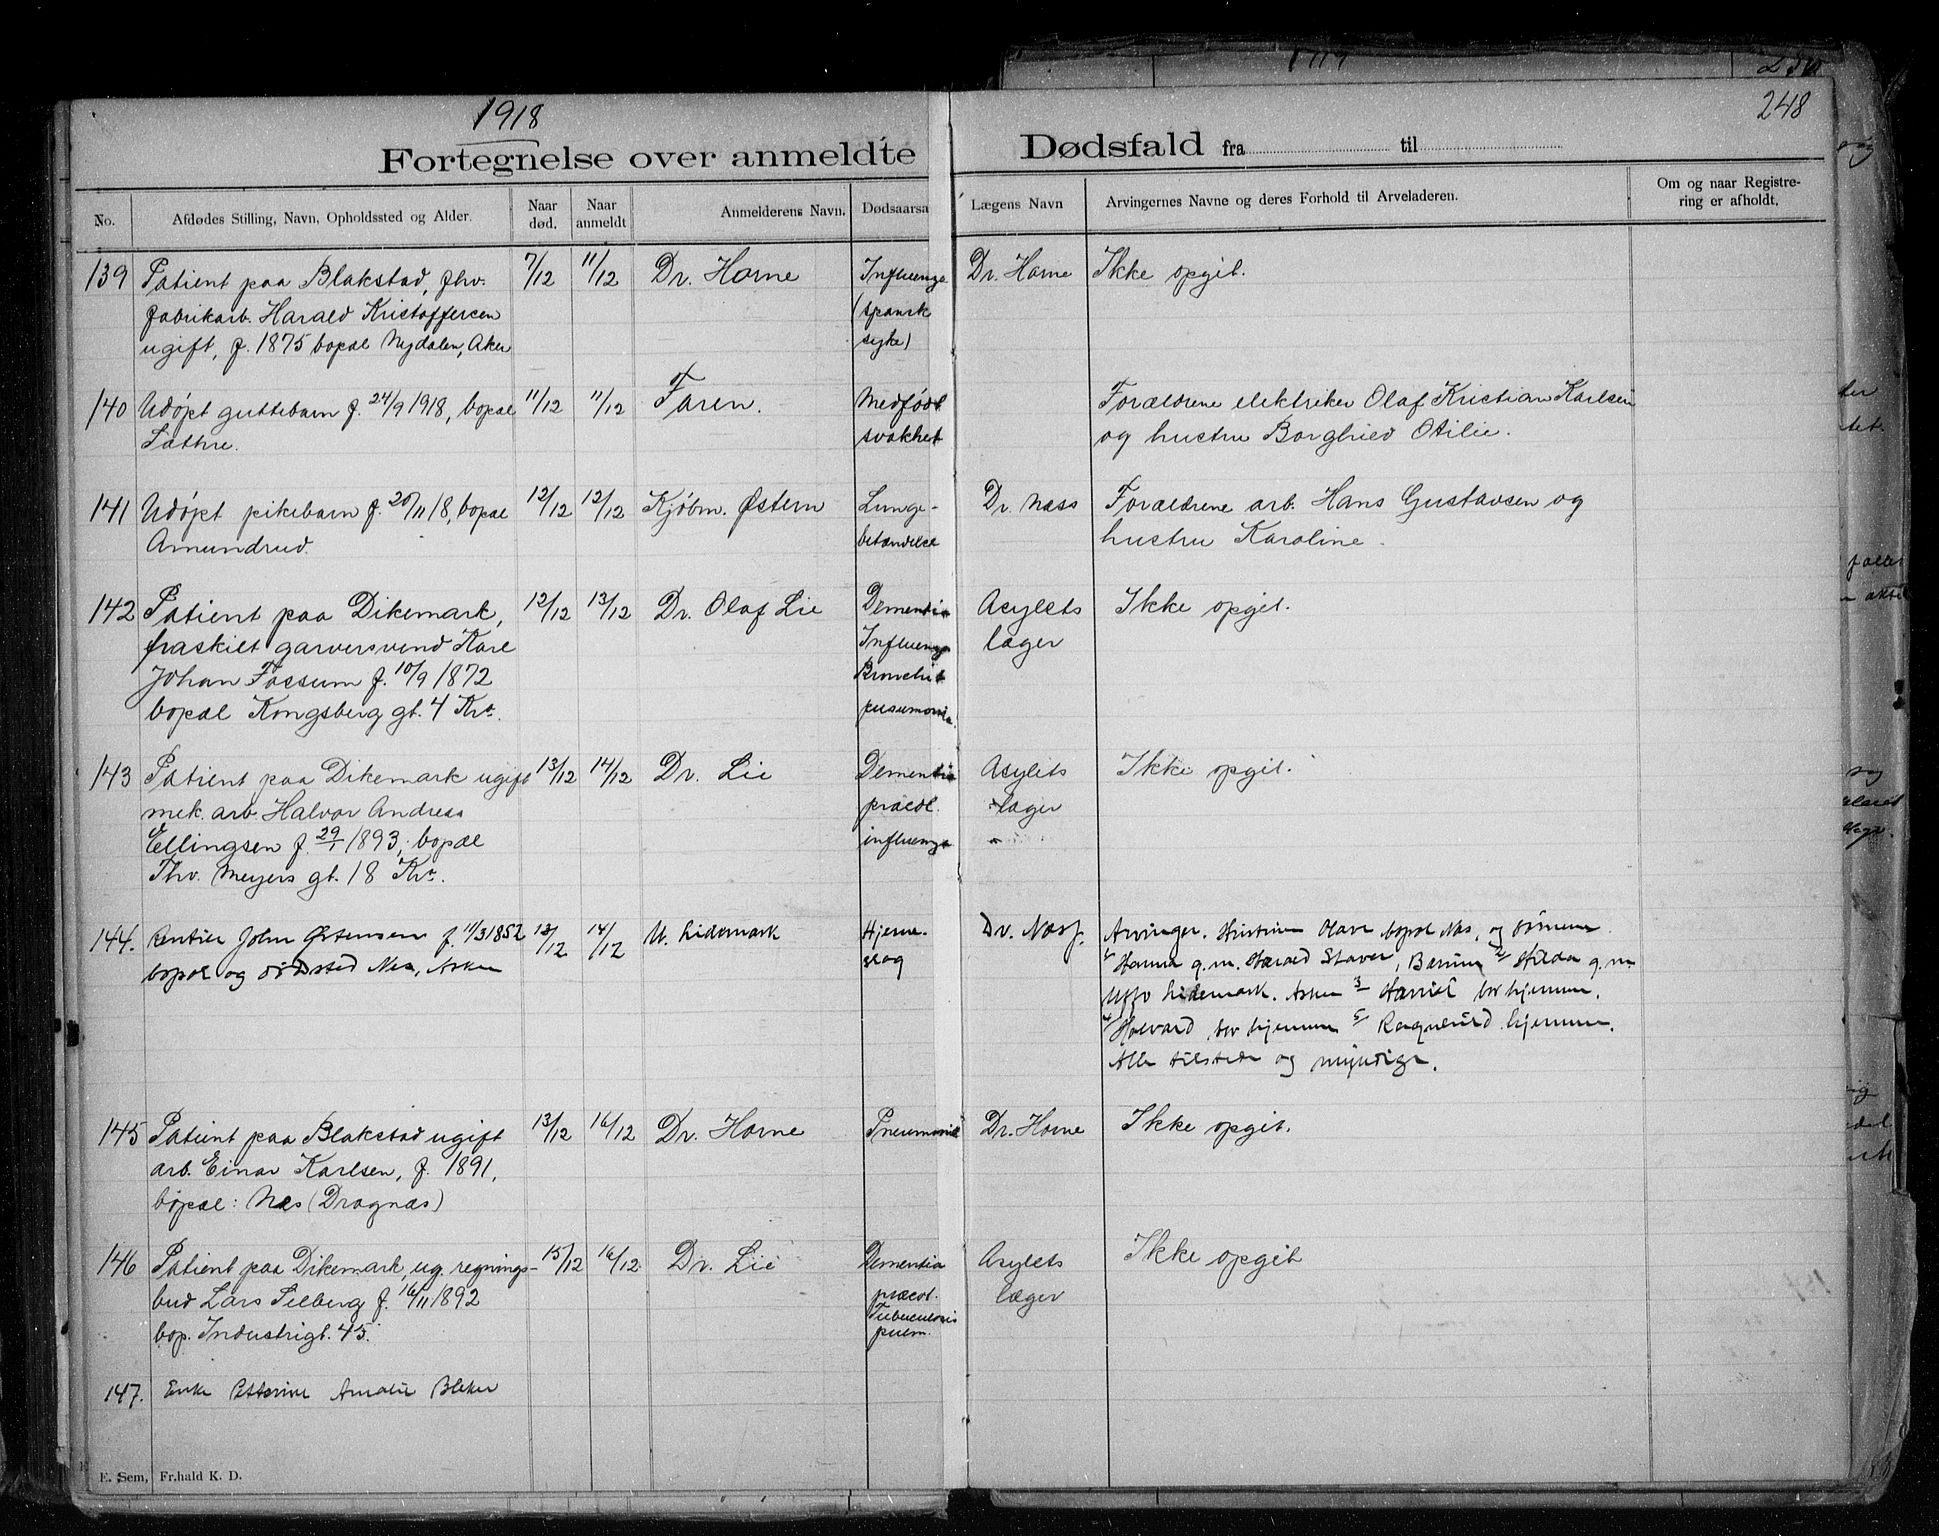 1918
248
Fortegnelse over anmeldte Dødsfald fra til
No. Afdødes Stilling, Navn, Opholdssted og Alder. Naar død. Naar anmeldt Anmelderens Navn. Dødsaarsa Lægens Navn Arvingernes Navne og deres Forhold til Arveladeren. Om og naar Registrering er afholdt.
139 Patient paa Blakstad, fhv. 7/12 11/12 Dr. Horne Influenza Dr. Horne Ikke opgit.
fabrikarb. Harald Kristoffersen (spansk
ugift, f. 1875 bopæl Nydalen, Aker syke)
140 Udøpt guttebarn f. 24/9 1918, bopæl 11/12 11/12 Faren. Medfødt Forældrene elektriker Olaf Kristian Karlsen
Sætre. svakhet og hustru Borghild Otilie.
141 Udøpt pikebarn f. 20/11 18, bopæl 12/12 12/12 Kjøbm. Østern Lunge- Dr. Næss Forældrene arb. Hans Gustavsen og
Amundrud. betændelse hustru Karoline.
142 Patient paa Dikemark, 12/12 13/12 Dr. Olaf Lie Dementia Asylets Ikke opgit.
fraskilt garversvend Karl Influenza læger
Johan Fossum f. 10/9 1872 Bronchit
bopæl Kongsberg gt. 4 Kra. pneumonia.
143 Patient paa Dikemark ugift 13/12 14/12 Dr. Lie Dementia Asylets Ikke opgit.
mek. arb. Halvor Andreas præcol. læger
Ellingsen f. 29/1 1893, bopæl influenza
Thv. Meyers gt. 18 Kra.
144. Rentier John Østensen f. 11/3 1852 13/12 14/12 U. Lidemark Hjerne- Dr. Næss. Arvinger. Hustruen Olava bopæl Næs, og börnene
bopæl og dödsted Næs, Asker slag 1/ Hanna g.m. Harald Staver, Bærum 2/ Hilda g.m.
Uffo Lidemark. Asker 3/ Harriet bor hjemme.
4/ Halvard bor hjemme 5/ Ragnhild hjemme.
Alle tilstede og myndige.
145 Patient paa Blakstad ugift 13/12 16/12 Dr. Horne Pneumonie Dr. Horne Ikke opgit.
arb. Einar Karlsen, f. 1891,
bopæl: Næs (Dragnæs)
146 Patient paa Dikemark, ug. regnings- 15/12 16/12 Dr. Lie Dementia Asylets Ikke opgit
bud Lars Selberg f. 16/11 1892 præcol. læger
bop. Industrigt. 45. Tuberculosis
pulm.
147. Enke Petterine Amalie Bleker
E. Sem, Fr.hald K. D.